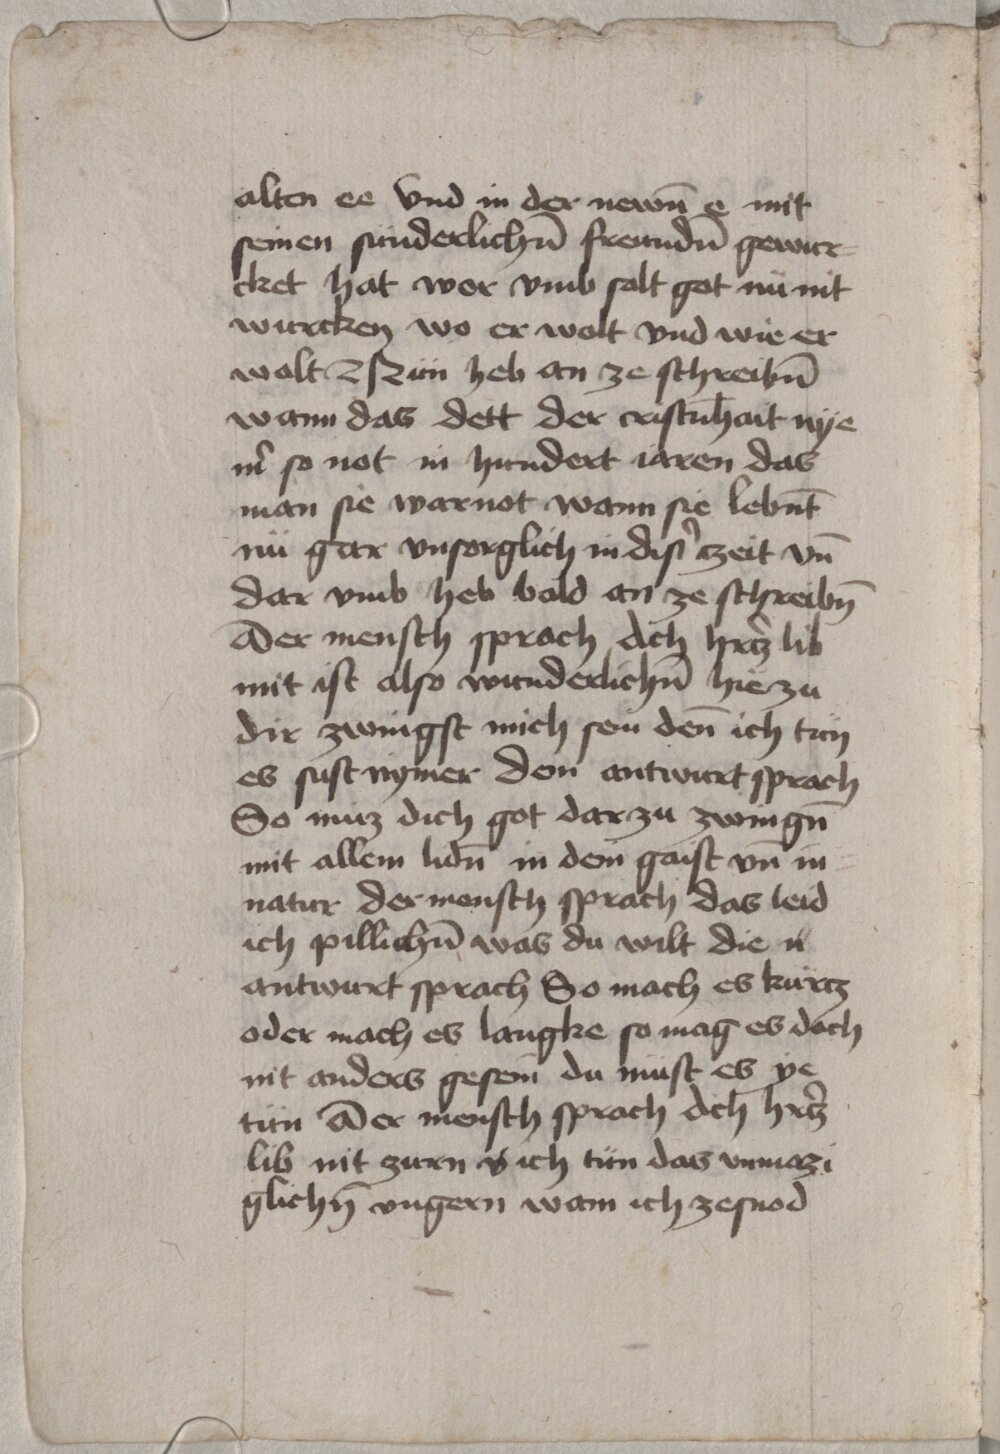 alten ee vnd in der newn̄ e mit
seinen sunderlichn̄ freundn̄ gewur-
cket hat wor vmb solt got nü nit
wurcken wo er wolt vnd wie er
wolt Nün heb an ze schreibn̄
wann das dett der cristn̄hait nye
mͤ so not in hundert iaren das
man sie warnot wann sie lebnt̄
nü gar vnsorglich in disr̄ tzeit vn̄
dar vmb heb bald an ze schreibn̄
Der mensch sprach Ach hrtz lib
mit ist also wunderlichn̄ hie zu
dir zwingst mich sein den̄ ich tün
es sust nymer Dein antwurt sprach
So müz dich got dar zu zwingn̄
mit allem lidn̄ in dein gaist vn̄ in
natur Der mensch sprach das leid
ich pillichn̄ was du wilt die
antwurt sprach So mach es kürtz
oder mach es langke so mag es doch
nit anders gesein̄ du müst es ye
tün Der mensch sprach Ach hrtz
lib nit zurn ich tün das vnmazi
glichn̄ vngern wann ich